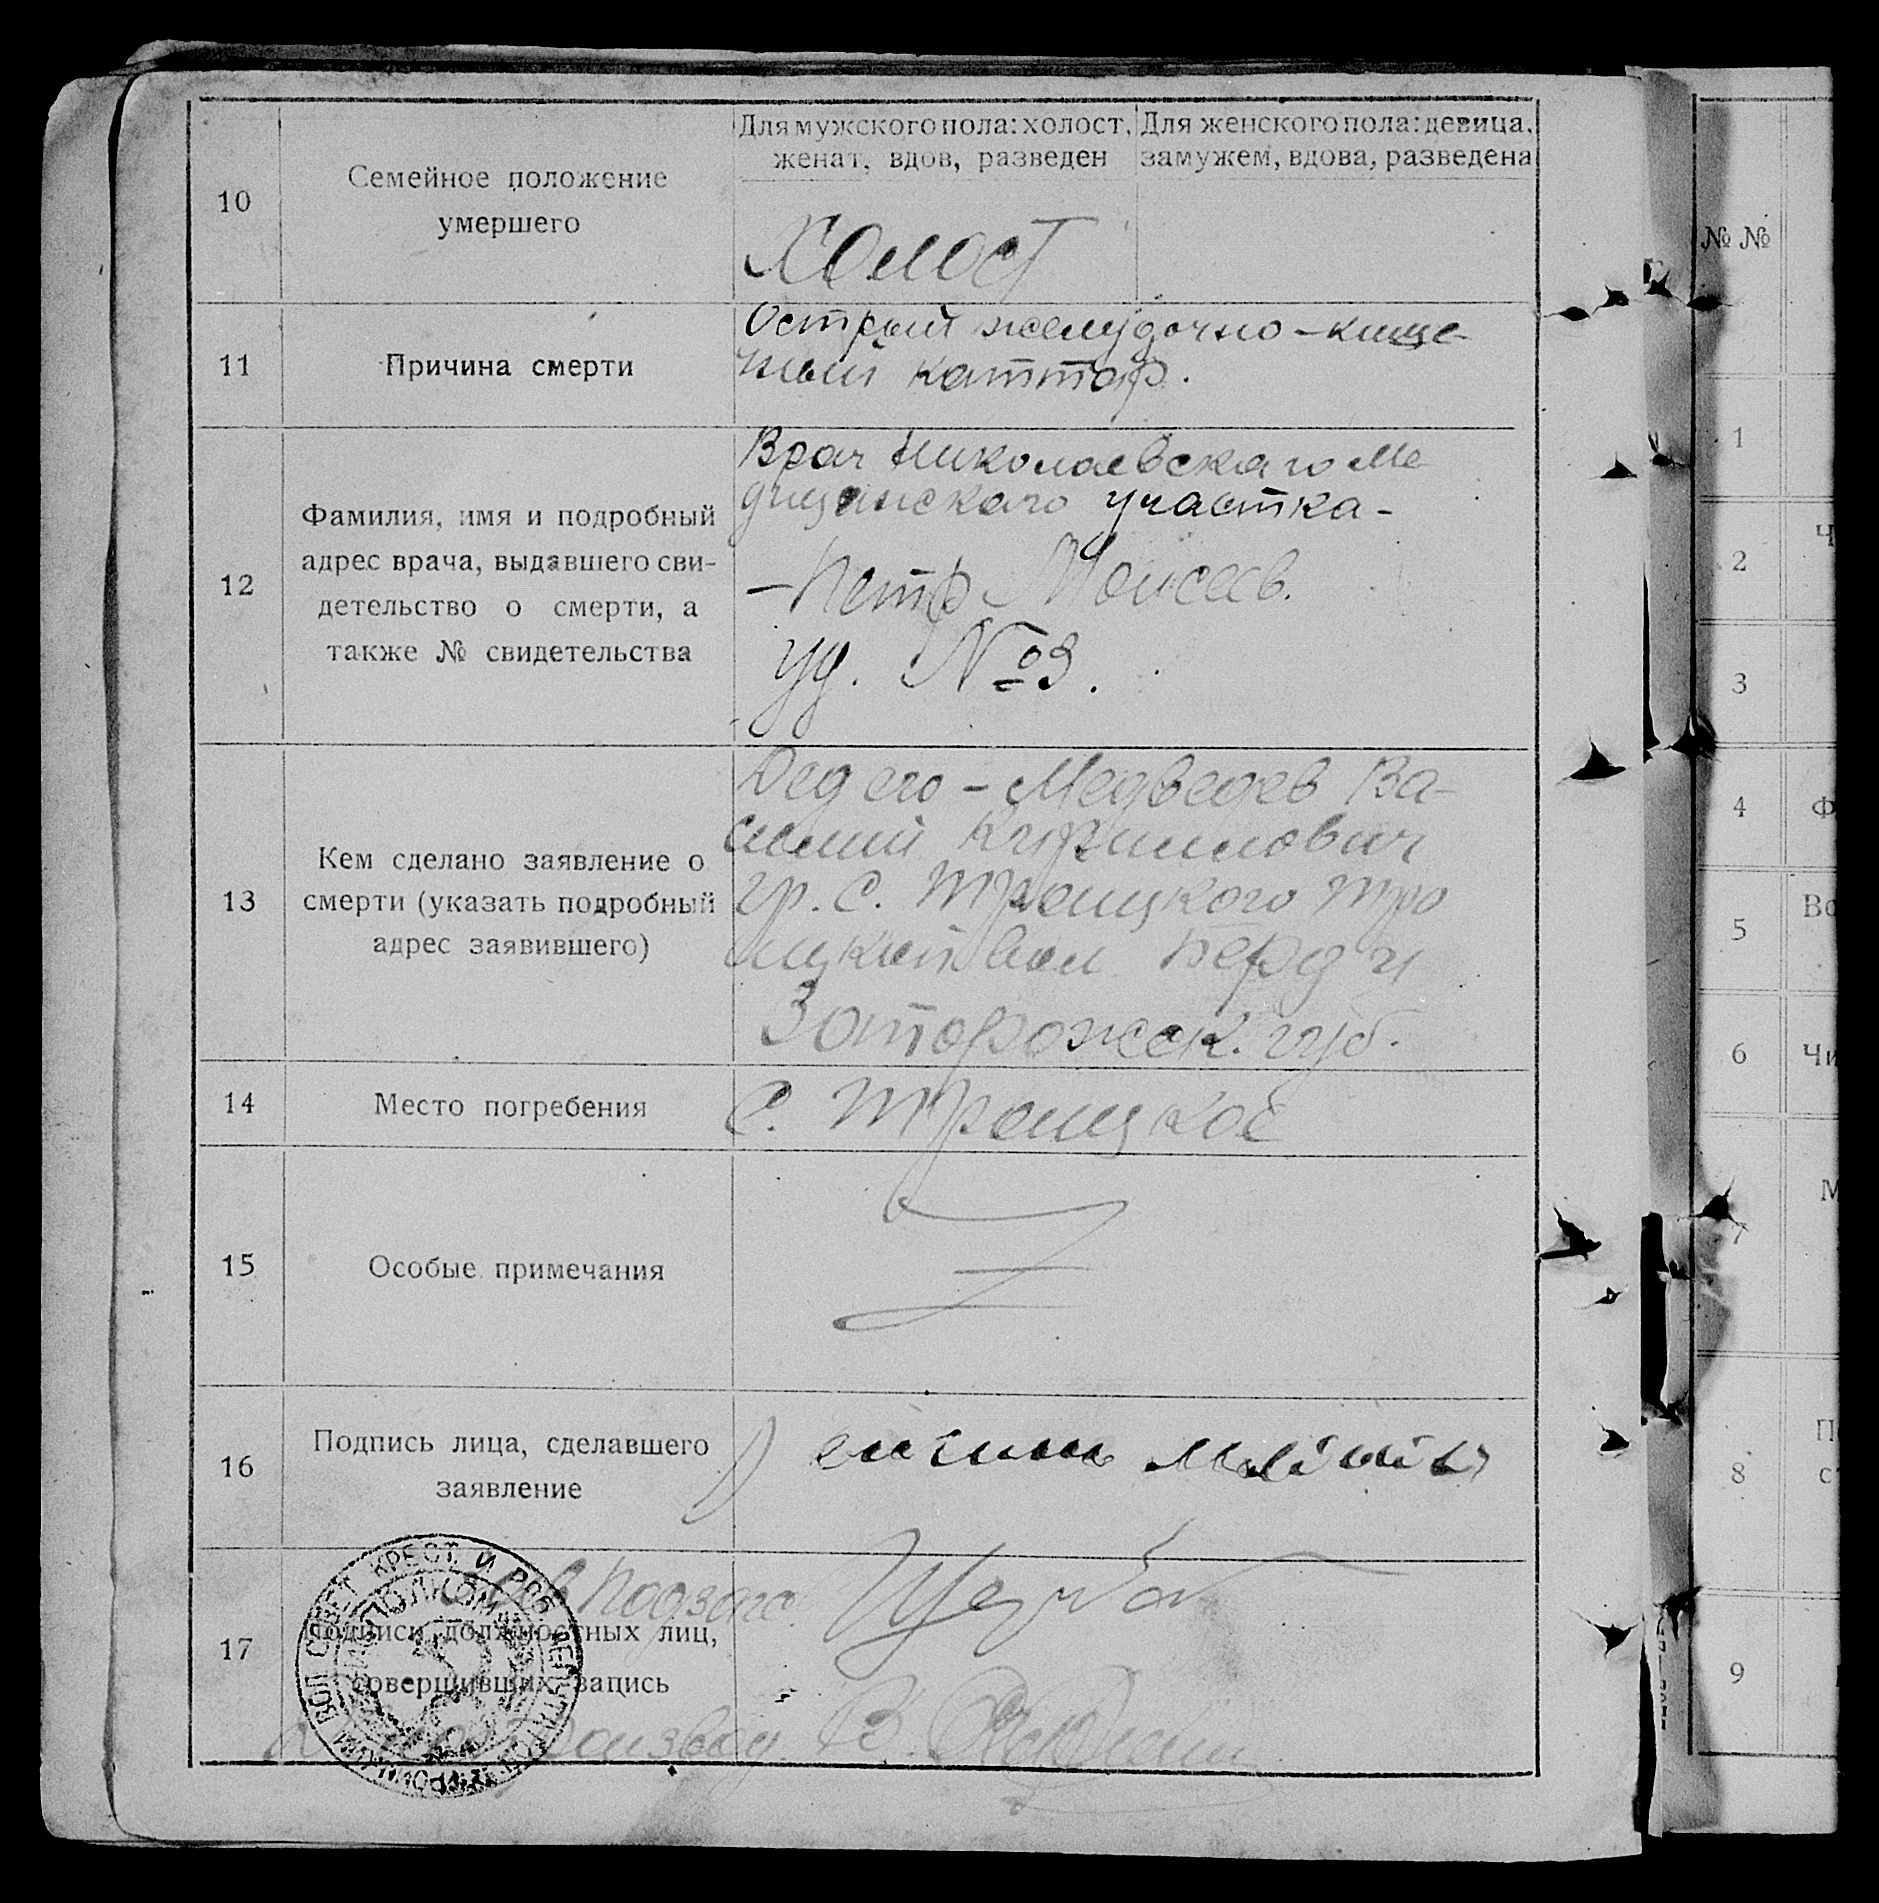 Для мужского пола: холост,
женат, вдов, разведен
Для женского пола: девица,
замужем, вдова, разведена
10
Семейное положение
умершего
Холост
11
Причина смерти
Острый желудочно-кише-
чный каттар.
12
Фамилия, имя и подробный
адрес врача, выдавшего сви-
детельство о смерти, а
также № свидетельства
Врач Николаевскаго Ме
дицинского участка-
-Петр Моисеев.
уд. № 3.
13
Кем сделано заявление о
смерти (указать подробный
адрес заявившего)
Дед его - Медведев Ва-
силий Кириллович
гр. С. Троицкого Тро
ицкой вол Берд у
Запорожск. губ.
14
Место погребения
С. Троицкое
15
Особые примечания
16
Подпись лица, сделавшего
заявление
17
Зав Подзаго
Подписи должностных лиц,
совершивших запись
Делопроизвод. В.
ВОЛ СОВЕТ КРЕСТ. И РОБ. ДЕПУТАТ
№ №
1
2
Ч
3
4
Ф
5
Во
6
Чи
М
7
П
8
с
9